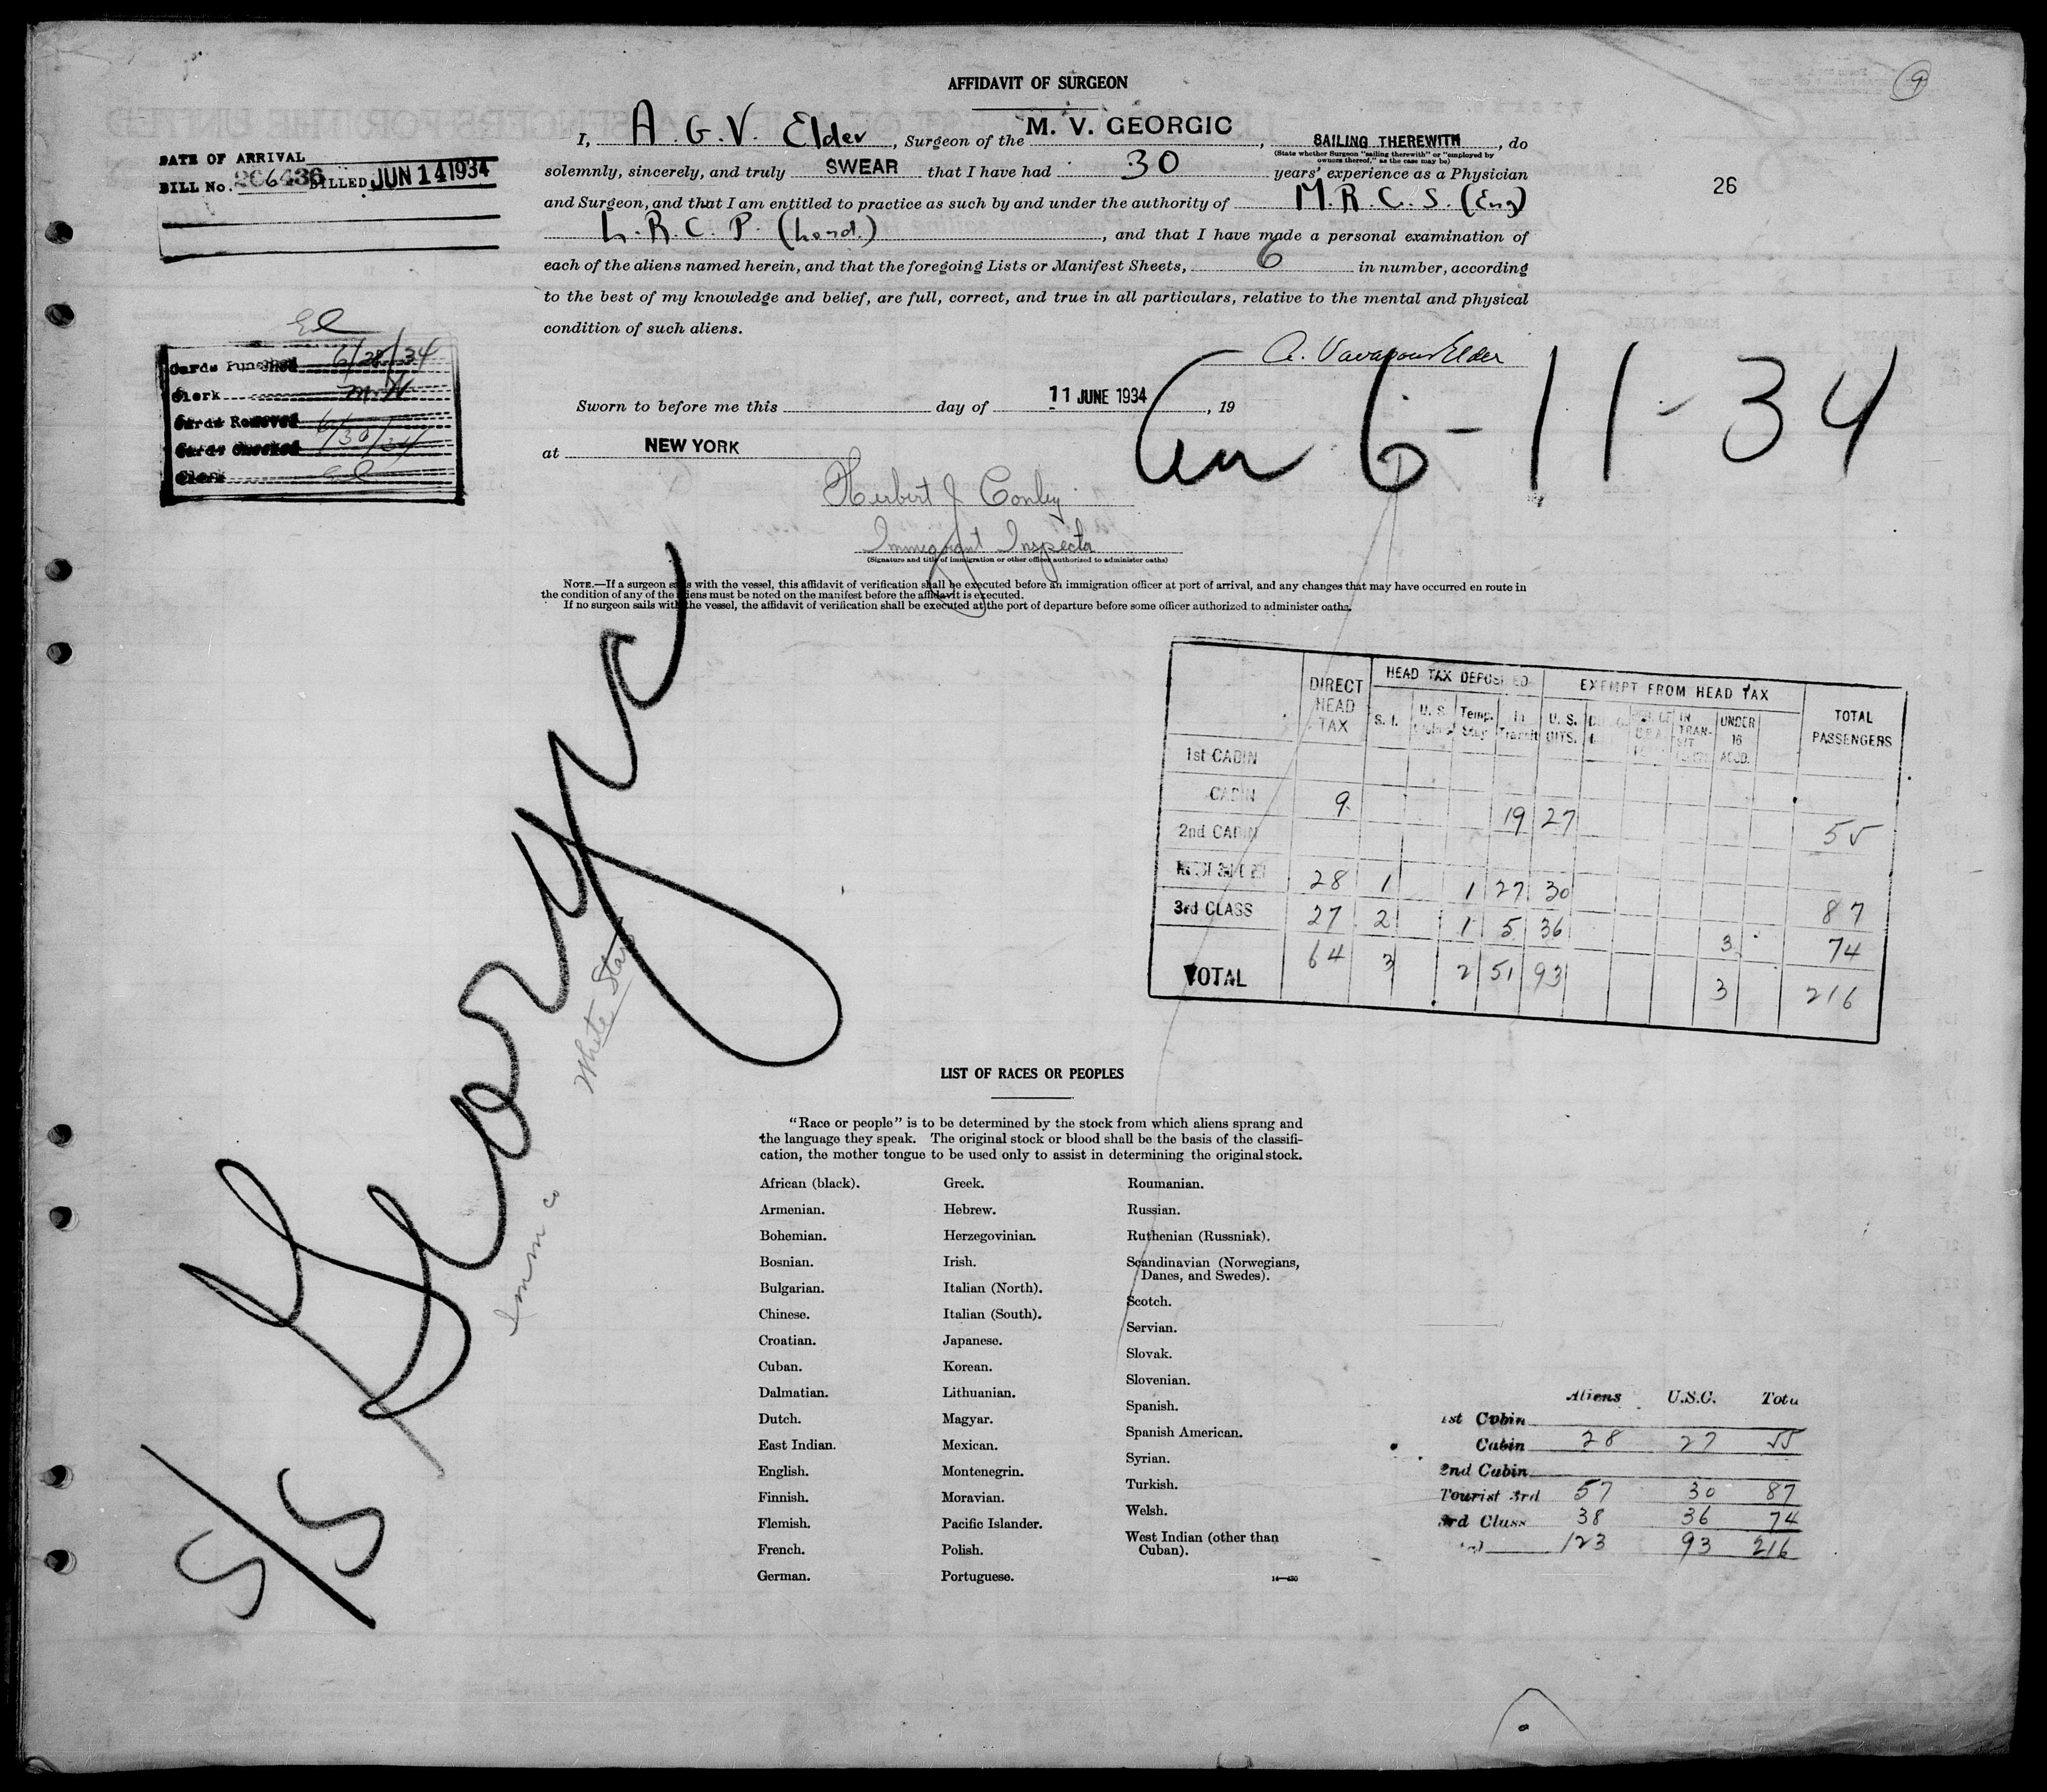 9
AFFIDAVIT OF SURGEON
I, A. G. V. Elder, Surgeon of the M. V. GEORGIC, SAILING THEREWITH, do
(State whether Surgeon "sailing therewith" or "employed by
owners thereof," as the case may be)
solemnly, sincerely, and truly SWEAR that I have had 30 years' experience as a Physician
and Surgeon, and that I am entitled to practice as such by and under the authority of M. R. C. S. (Eng)
L. R. C. P. (Lond.), and that I have made a personal examination of
each of the aliens named herein, and that the foregoing Lists or Manifest Sheets, 6 in number, according
to the best of my knowledge and belief, are full, correct, and true in all particulars, relative to the mental and physical
condition of such aliens.
Elder
Sworn to before me this day of 11 JUNE 1934, 19
at NEW YORK
Herbert J Conley
Immigrant Inspector
(Signature and title of immigration or other officer authorized to administer oaths)
NOTE.—If a surgeon sails with the vessel, this affidavit of verification shall be executed before an immigration officer at port of arrival, and any changes that may have occurred en route in
the condition of any of the aliens must be noted on the manifest before the affidavit is executed.
If no surgeon sails with the vessel, the affidavit of verification shall be executed at the port of departure before some officer authorized to administer oaths.
DATE OF ARRIVAL
BILL No. 206436 BILLED JUN 14 1934
26
Cards Punched 6/28/34
Clerk
Cards Removed 6/30/34
Cards Checked
Clerk
6-11-34
S/S Georgic
White Star
Imm Co
DIRECT HEAD TAX HEAD TAX DEPOSITED EXEMPT FROM HEAD TAX TOTAL PASSENGERS
S. I. U. S. Temp. Stay In Transit U. S. CITS. IN TRANSIT UNDER 16 ACCD.
1st CABIN
CABIN 9 19 27 55
2nd CABIN
28 1 1 27 30 87
3rd CLASS 27 2 1 5 36 3 74
TOTAL 64 3 2 51 93 3 216
LIST OF RACES OR PEOPLES
"Race or people" is to be determined by the stock from which aliens sprang and
the language they speak. The original stock or blood shall be the basis of the classifi-
cation, the mother tongue to be used only to assist in determining the original stock.
African (black).
Armenian.
Bohemian.
Bosnian.
Bulgarian.
Chinese.
Croatian.
Cuban.
Dalmatian.
Dutch.
East Indian.
English.
Finnish.
Flemish.
French.
German.
Greek.
Hebrew.
Herzegovinian.
Irish.
Italian (North).
Italian (South).
Japanese.
Korean.
Lithuanian.
Magyar.
Mexican.
Montenegrin.
Moravian.
Pacific Islander.
Polish.
Portuguese.
Roumanian.
Russian.
Ruthenian (Russniak).
Scandinavian (Norwegians,
Danes, and Swedes).
Scotch.
Servian.
Slovak.
Slovenian.
Spanish.
Spanish American.
Syrian.
Turkish.
Welsh.
West Indian (other than
Cuban).
Aliens U.S.C. Tota
1st Cabin
Cabin 28 27 55
2nd Cabin
Tourist 3rd 57 30 87
3rd Class 38 36 74
123 93 216